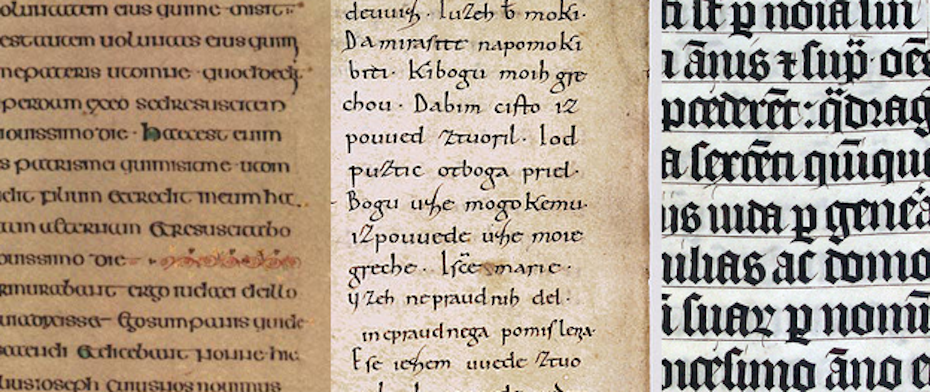 uoluntatem eius quime misit
est autem uoluntas eius quim
nepatris utomne quoddedi
perdam exeo sedresuscitem
ouissimo die · haecest enim
s patrismei quimisitme utom
det filium etcredit ineum ha
am aeternam etresuscitabo
ouissimo die
rmurabant ergo iudaei deillo
uiadixisset egosumpanis quide
scendi etdicebant nonne hic
lius ioseph cuiusnos nouimus
devuiz. Iuzeh ƀ moki.
Da mirazite napomoki
biti. Kibogu moih gre
chou. Dabim cisto iz
pouued ztuoril. Iod
puztic otboga priel.
Bogu uze mogokemu.
izpouuede uze moie
greche. Isce marie.
ij zeh nepraudnih del.
inepraudnega pomislena.
Ese iezem uuede ztuo
ti st̄ ꝑ noīa sin
a ānis ⁊ sup̄ oēs
pcederēt: q̄drag
a sexcēti quīque
ijs iuxta ꝑ geneā
ilias ac domo
i suaꝝ ꝑ nomī
ncesimo āno e